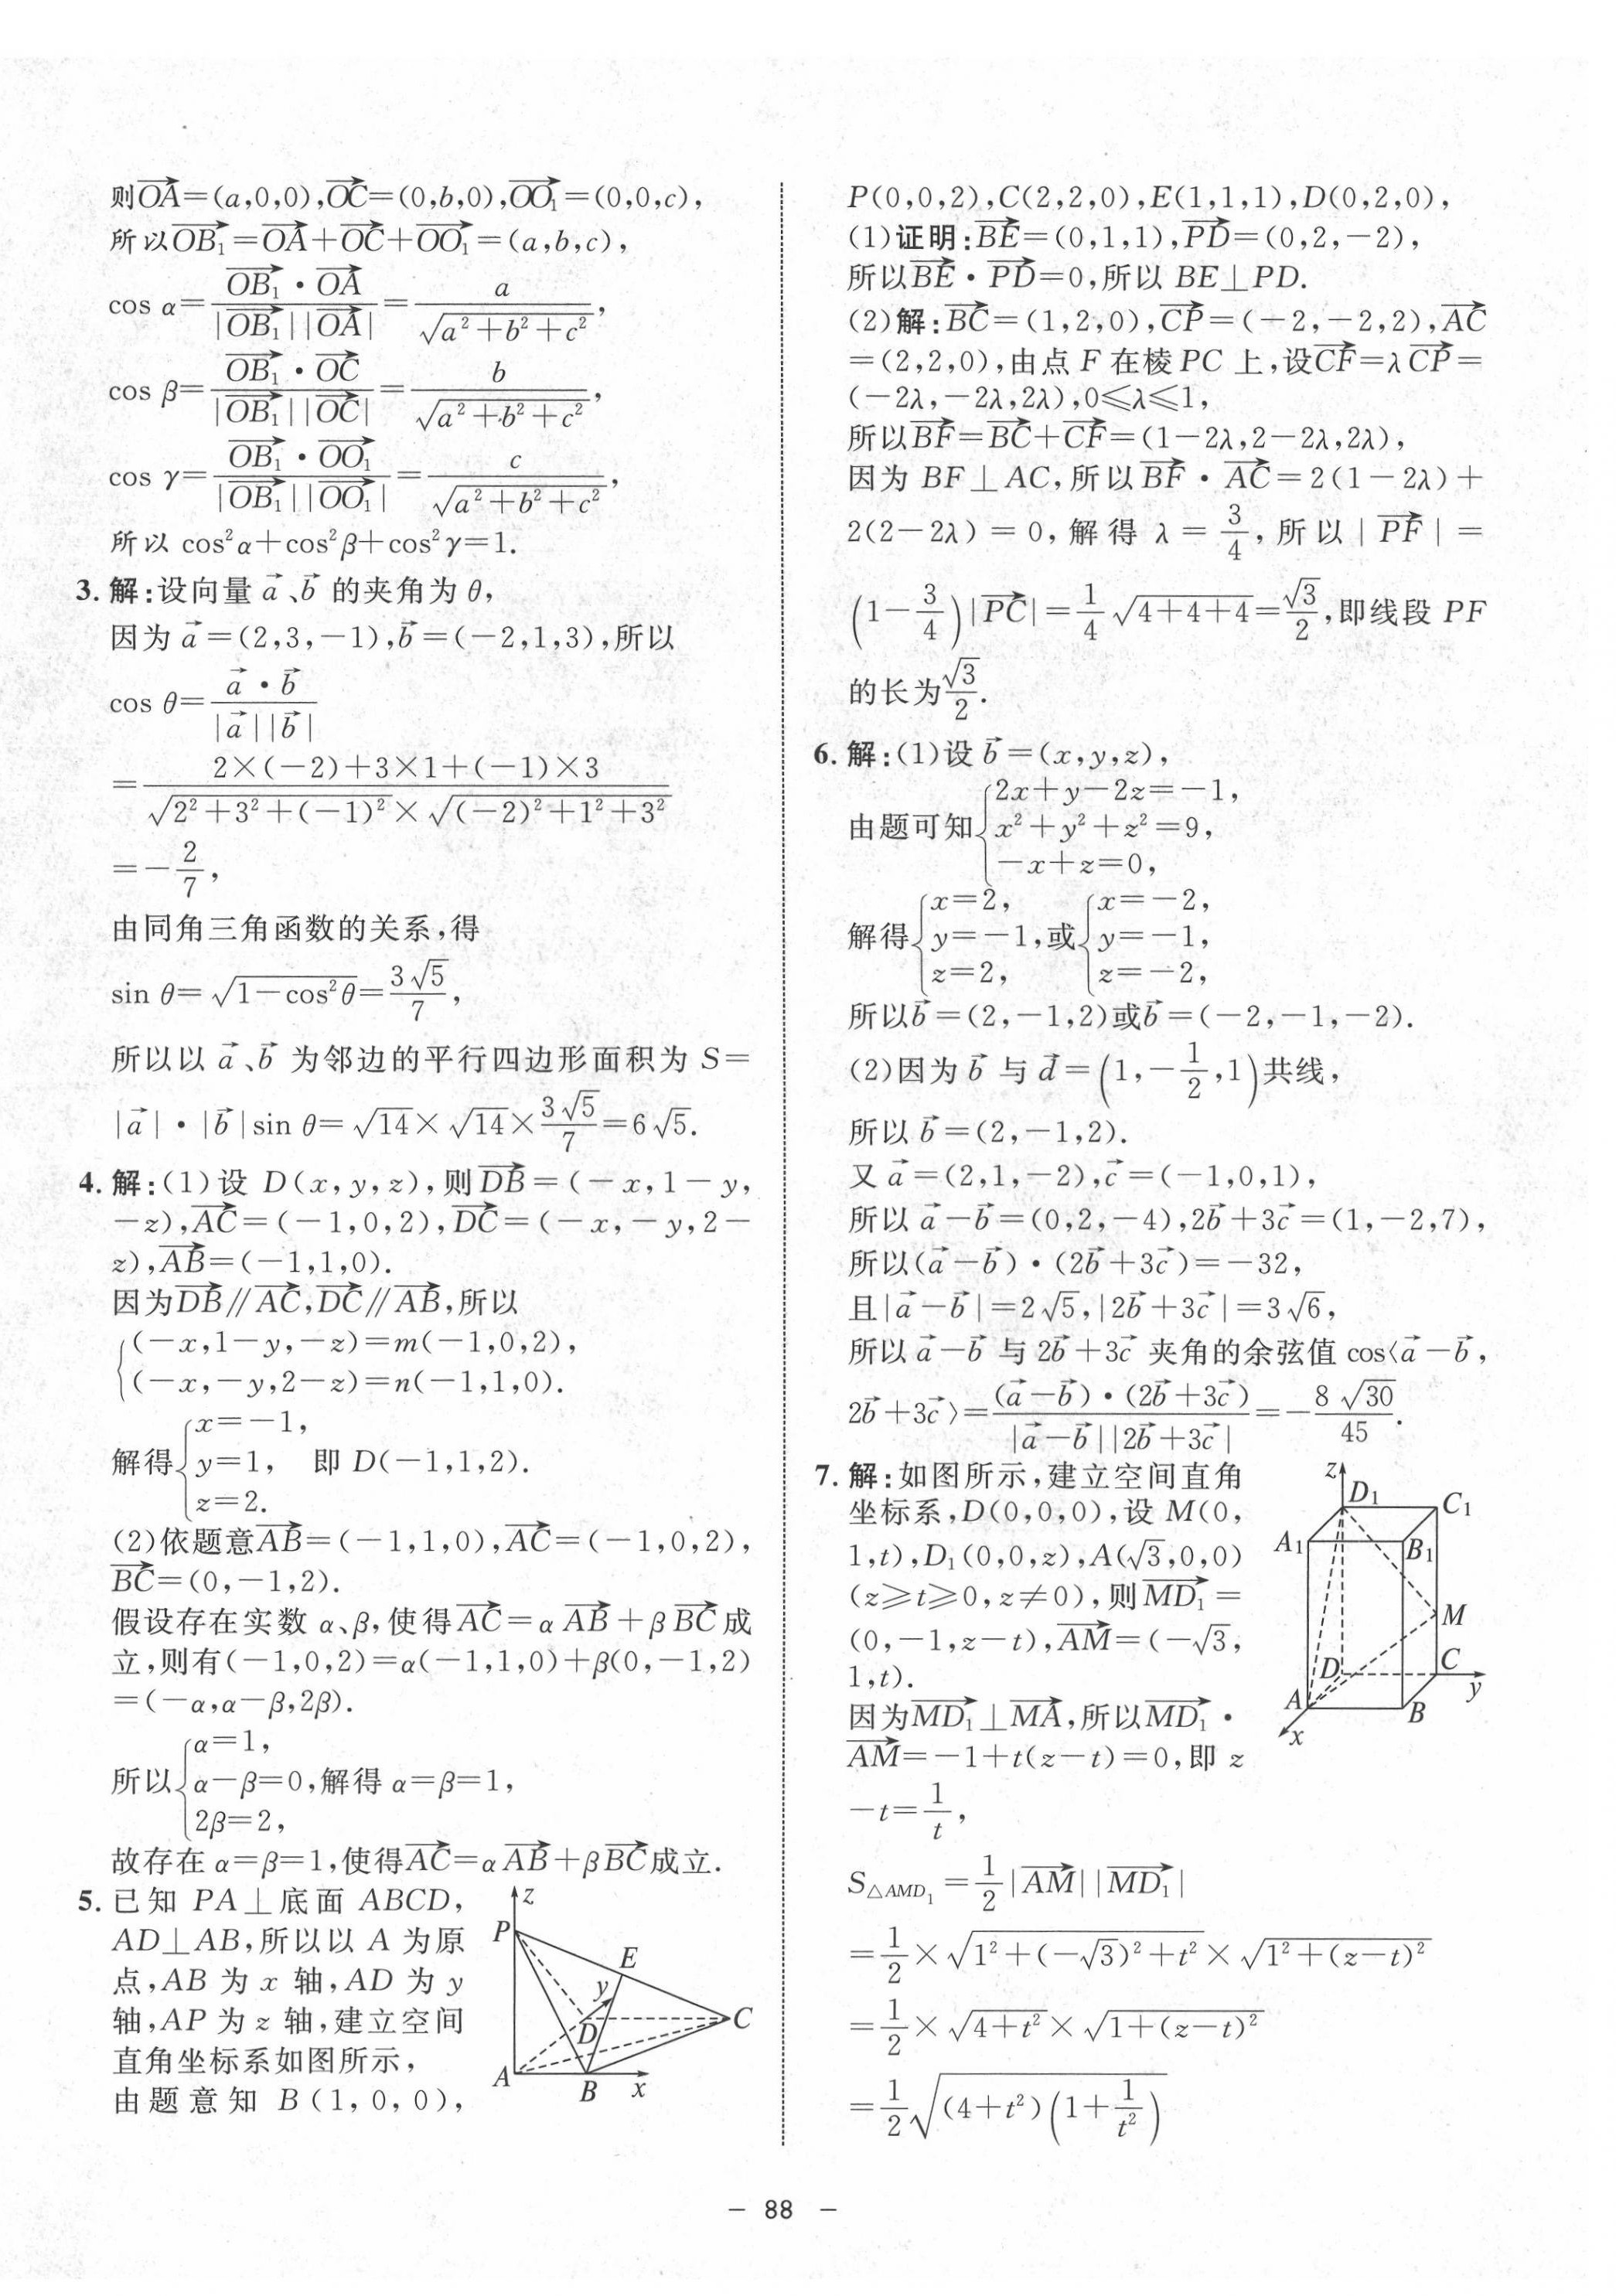 则$\overrightarrow{OA}$=(a,0,0),$\overrightarrow{OC}$=(0,b,0),$\overrightarrow{OO_1}$=(0,0,c),
所以$\overrightarrow{OB_1}$=$\overrightarrow{OA}$+$\overrightarrow{OC}$+$\overrightarrow{OO_1}$=(a,b,c),
cos α=$\frac{\overrightarrow{OB_1}·\overrightarrow{OA}}{|\overrightarrow{OB_1}||\overrightarrow{OA}|}$=$\frac{a}{\sqrt{a^2+b^2+c^2}}$,
cos β=$\frac{\overrightarrow{OB_1}·\overrightarrow{OC}}{|\overrightarrow{OB_1}||\overrightarrow{OC}|}$=$\frac{b}{\sqrt{a^2+b^2+c^2}}$,
cos γ=$\frac{\overrightarrow{OB_1}·\overrightarrow{OO_1}}{|\overrightarrow{OB_1}||\overrightarrow{OO_1}|}$=$\frac{c}{\sqrt{a^2+b^2+c^2}}$,
所以 cos²α+cos²β+cos²γ=1.
3. 解:设向量 $\vec{a}$、$\vec{b}$ 的夹角为 θ,
因为 $\vec{a}$=(2,3,-1),$\vec{b}$=(-2,1,3),所以
cos θ=$\frac{\vec{a}·\vec{b}}{|\vec{a}||\vec{b}|}$
=$\frac{2×(-2)+3×1+(-1)×3}{\sqrt{2^2+3^2+(-1)^2}×\sqrt{(-2)^2+1^2+3^2}}$
=-$\frac{2}{7}$,
由同角三角函数的关系,得
sin θ=$\sqrt{1-\cos^2θ}$=$\frac{3\sqrt{5}}{7}$,
所以以 $\vec{a}$、$\vec{b}$ 为邻边的平行四边形面积为 S=
|$\vec{a}$|·|$\vec{b}$|sin θ=$\sqrt{14}$×$\sqrt{14}$×$\frac{3\sqrt{5}}{7}$=6$\sqrt{5}$.
4. 解:(1)设 D(x,y,z),则$\overrightarrow{DB}$=(-x,1-y,
-z),$\overrightarrow{AC}$=(-1,0,2),$\overrightarrow{DC}$=(-x,-y,2-
z),$\overrightarrow{AB}$=(-1,1,0).
因为$\overrightarrow{DB}$∥$\overrightarrow{AC}$,$\overrightarrow{DC}$∥$\overrightarrow{AB}$,所以
{(-x,1-y,-z)=m(-1,0,2),
(-x,-y,2-z)=n(-1,1,0).
x=-1,
解得{y=1, 即 D(-1,1,2).
z=2.
(2)依题意$\overrightarrow{AB}$=(-1,1,0),$\overrightarrow{AC}$=(-1,0,2),
$\overrightarrow{BC}$=(0,-1,2).
假设存在实数 α、β,使得$\overrightarrow{AC}$=α$\overrightarrow{AB}$+β$\overrightarrow{BC}$成
立,则有(-1,0,2)=α(-1,1,0)+β(0,-1,2)
=(-α,α-β,2β).
α=1,
所以{α-β=0,解得 α=β=1,
2β=2,
故存在 α=β=1,使得$\overrightarrow{AC}$=α$\overrightarrow{AB}$+β$\overrightarrow{BC}$成立.
5. 已知 PA⊥底面 ABCD,
AD⊥AB,所以以 A 为原
点,AB 为 x 轴,AD 为 y
轴,AP 为 z 轴,建立空间
直角坐标系如图所示,
由题意知 B(1,0,0),
z
P
E
y
D
C
A
B
x
P(0,0,2),C(2,2,0),E(1,1,1),D(0,2,0),
(1)证明:$\overrightarrow{BE}$=(0,1,1),$\overrightarrow{PD}$=(0,2,-2),
所以$\overrightarrow{BE}$·$\overrightarrow{PD}$=0,所以 BE⊥PD.
(2)解:$\overrightarrow{BC}$=(1,2,0),$\overrightarrow{CP}$=(-2,-2,2),$\overrightarrow{AC}$
=(2,2,0),由点 F 在棱 PC 上,设$\overrightarrow{CF}$=λ$\overrightarrow{CP}$=
(-2λ,-2λ,2λ),0≤λ≤1,
所以$\overrightarrow{BF}$=$\overrightarrow{BC}$+$\overrightarrow{CF}$=(1-2λ,2-2λ,2λ),
因为 BF⊥AC,所以$\overrightarrow{BF}$·$\overrightarrow{AC}$=2(1-2λ)+
2(2-2λ)=0,解得 λ=$\frac{3}{4}$,所以|$\overrightarrow{PF}$|=
(1-$\frac{3}{4}$)|$\overrightarrow{PC}$|=$\frac{1}{4}\sqrt{4+4+4}$=$\frac{\sqrt{3}}{2}$,即线段 PF
的长为$\frac{\sqrt{3}}{2}$.
6. 解:(1)设 $\vec{b}$=(x,y,z),
2x+y-2z=-1,
由题可知{x²+y²+z²=9,
-x+z=0,
x=2, x=-2,
解得{y=-1,或{y=-1,
z=2, z=-2,
所以$\vec{b}$=(2,-1,2)或$\vec{b}$=(-2,-1,-2).
(2)因为 $\vec{b}$ 与 $\vec{d}$=(1,-$\frac{1}{2}$,1)共线,
所以 $\vec{b}$=(2,-1,2).
又 $\vec{a}$=(2,1,-2),$\vec{c}$=(-1,0,1),
所以 $\vec{a}$-$\vec{b}$=(0,2,-4),2$\vec{b}$+3$\vec{c}$=(1,-2,7),
所以($\vec{a}$-$\vec{b}$)·(2$\vec{b}$+3$\vec{c}$)=-32,
且|$\vec{a}$-$\vec{b}$|=2$\sqrt{5}$,|2$\vec{b}$+3$\vec{c}$|=3$\sqrt{6}$,
所以 $\vec{a}$-$\vec{b}$ 与 2$\vec{b}$+3$\vec{c}$ 夹角的余弦值 cos⟨$\vec{a}$-$\vec{b}$,
2$\vec{b}$+3$\vec{c}$⟩=$\frac{(\vec{a}-\vec{b})·(2\vec{b}+3\vec{c})}{|\vec{a}-\vec{b}||2\vec{b}+3\vec{c}|}$=-$\frac{8\sqrt{30}}{45}$.
7. 解:如图所示,建立空间直角
坐标系,D(0,0,0),设 M(0,
1,t),D₁(0,0,z),A($\sqrt{3}$,0,0)
(z≥t≥0,z≠0),则$\overrightarrow{MD_1}$=
(0,-1,z-t),$\overrightarrow{AM}$=(-$\sqrt{3}$,
1,t).
因为$\overrightarrow{MD_1}$⊥$\overrightarrow{MA}$,所以$\overrightarrow{MD_1}$·
$\overrightarrow{AM}$=-1+t(z-t)=0,即 z
-t=$\frac{1}{t}$,
z
D₁
C₁
A₁
B₁
M
D
C
y
A
B
x
$S_{△AMD_1}$=$\frac{1}{2}$|$\overrightarrow{AM}$||$\overrightarrow{MD_1}$|
=$\frac{1}{2}$×$\sqrt{1^2+(-\sqrt{3})^2+t^2}$×$\sqrt{1^2+(z-t)^2}$
=$\frac{1}{2}$×$\sqrt{4+t^2}$×$\sqrt{1+(z-t)^2}$
=$\frac{1}{2}\sqrt{(4+t^2)(1+\frac{1}{t^2})}$
- 88 -